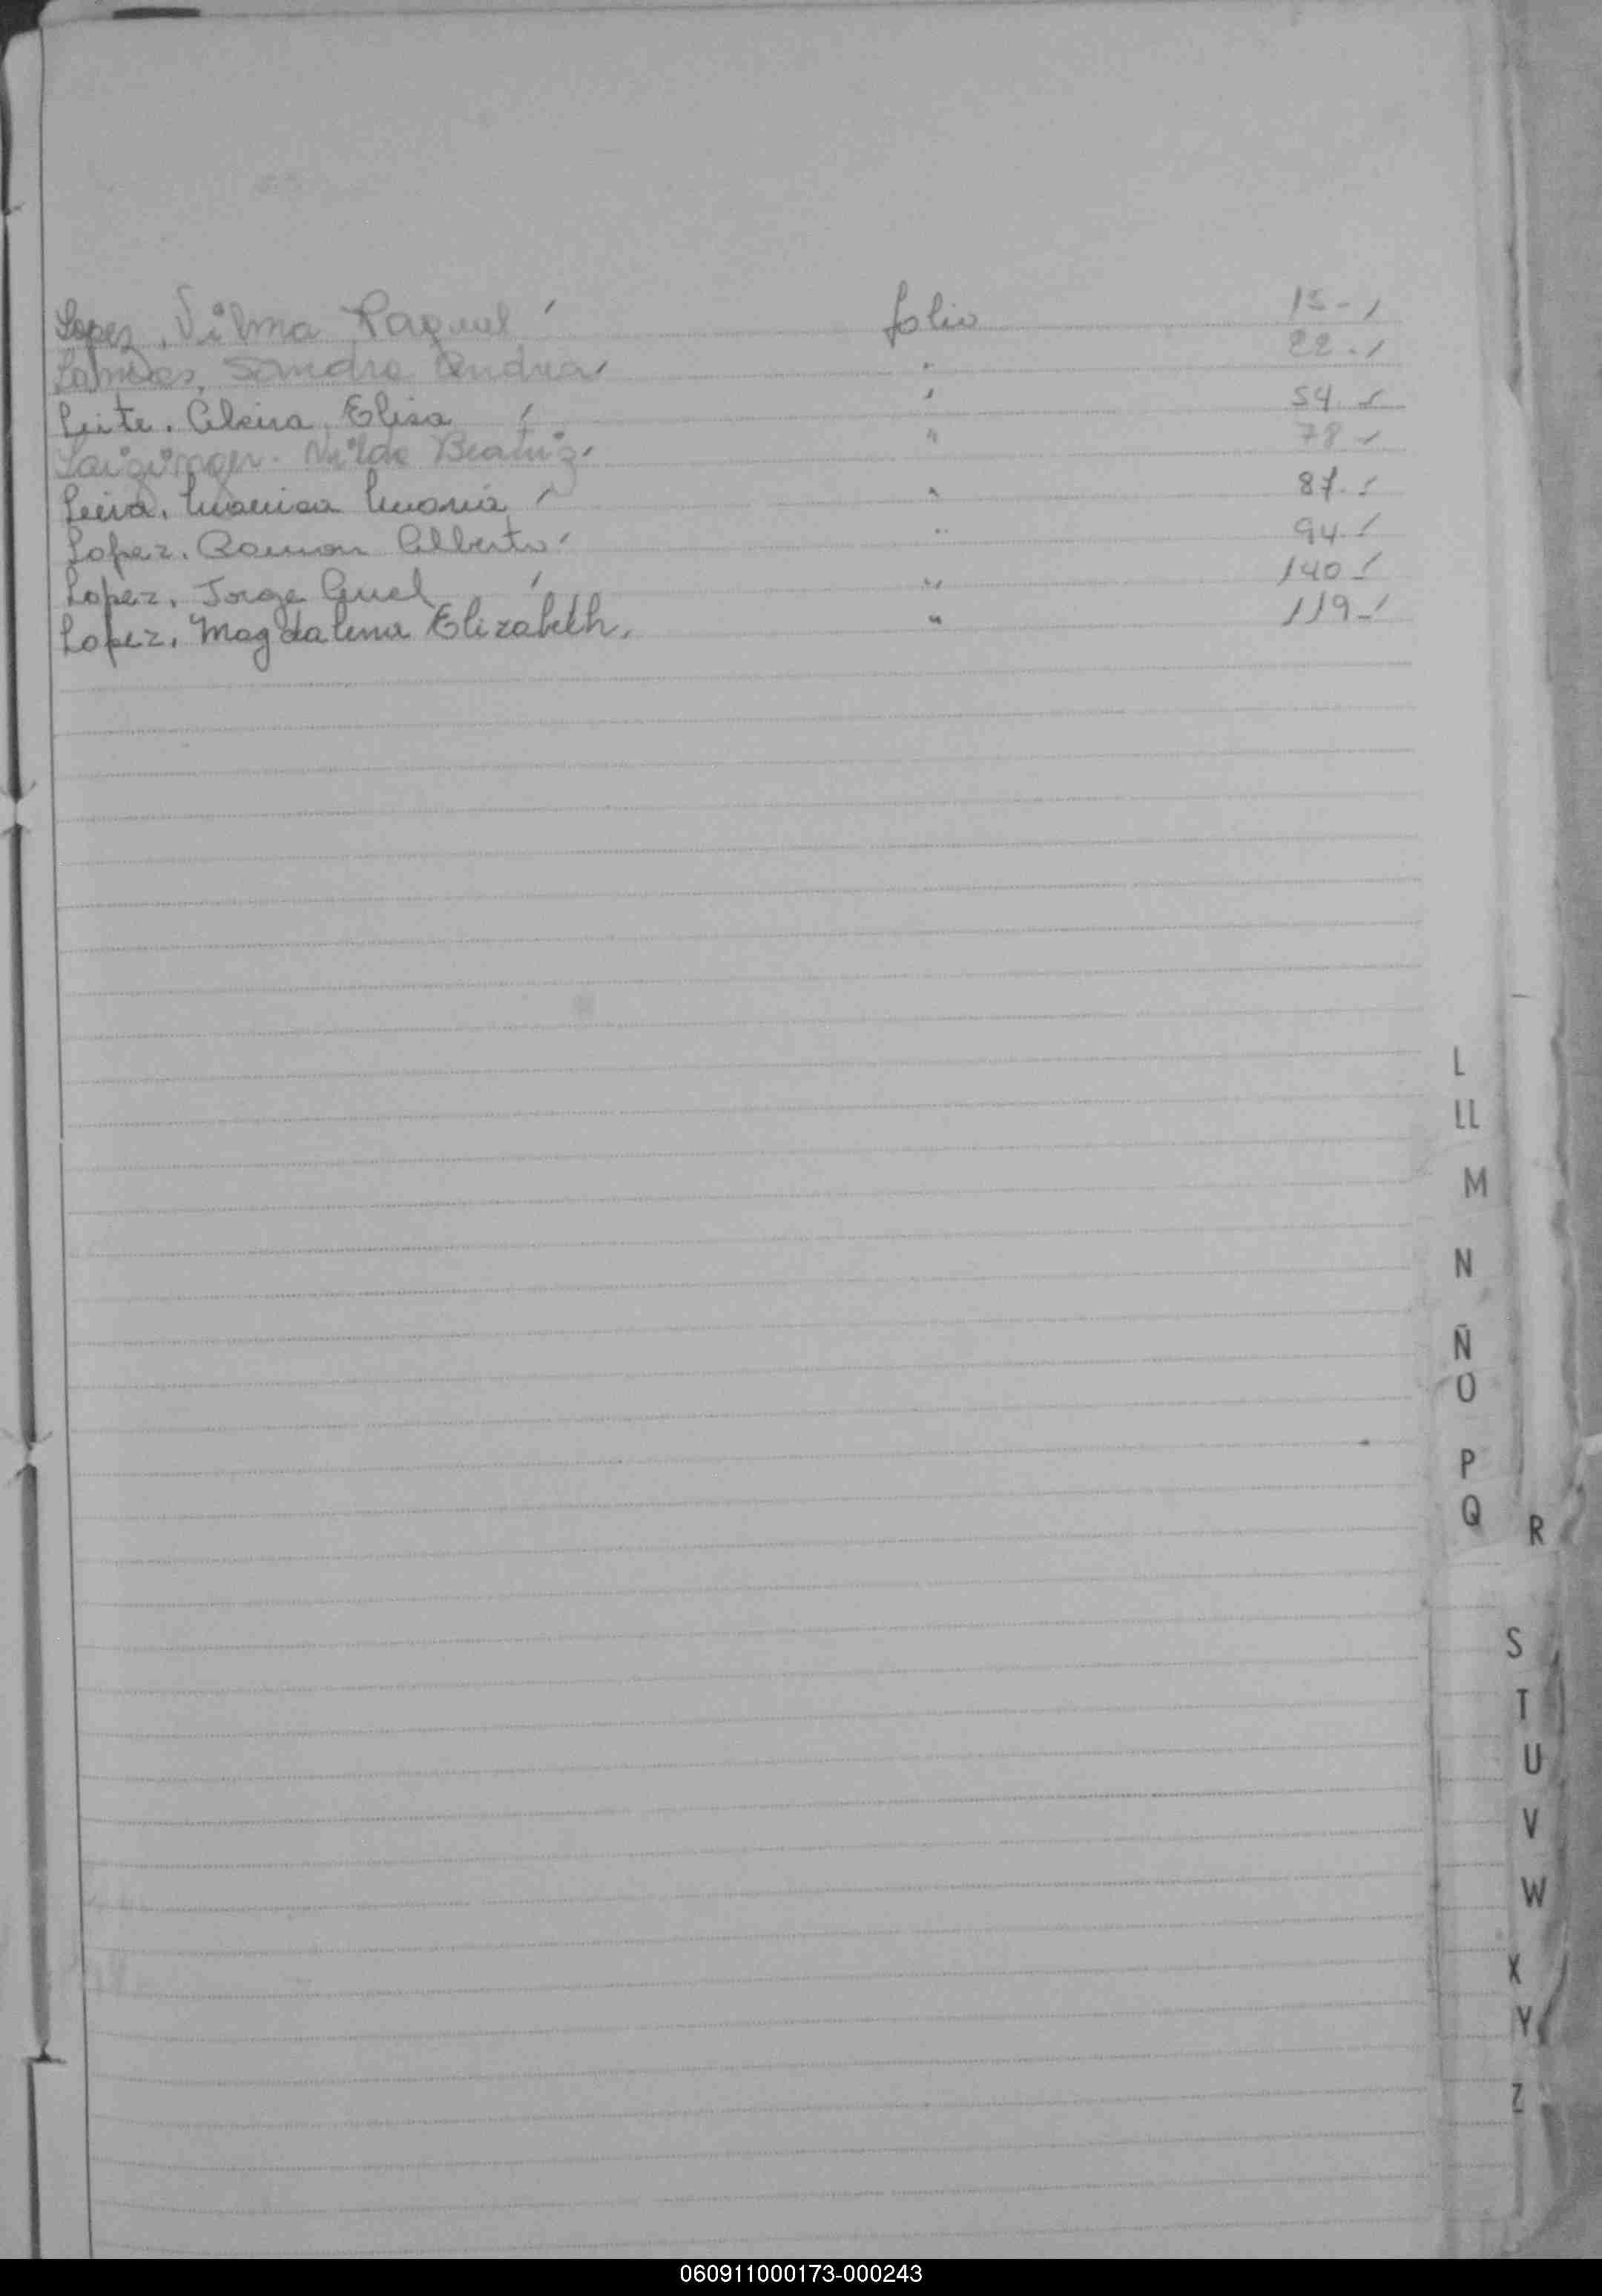 Lopez, Vilma Raquel folio 15-
Sandra Andrea " 22.-
Leite. Elisa " 54.-
Nilda Beatriz. " 78-
Leiva. Maria " 87.-
Lopez. Ramon Alberto. " 94.-
Lopez. Jorge " 140-
Lopez. Magdalena Elizabeth. " 119-
L
LL
M
N
Ñ
O
P
Q
R
S
T
U
V
W
X
Y
Z
060911000173-000243